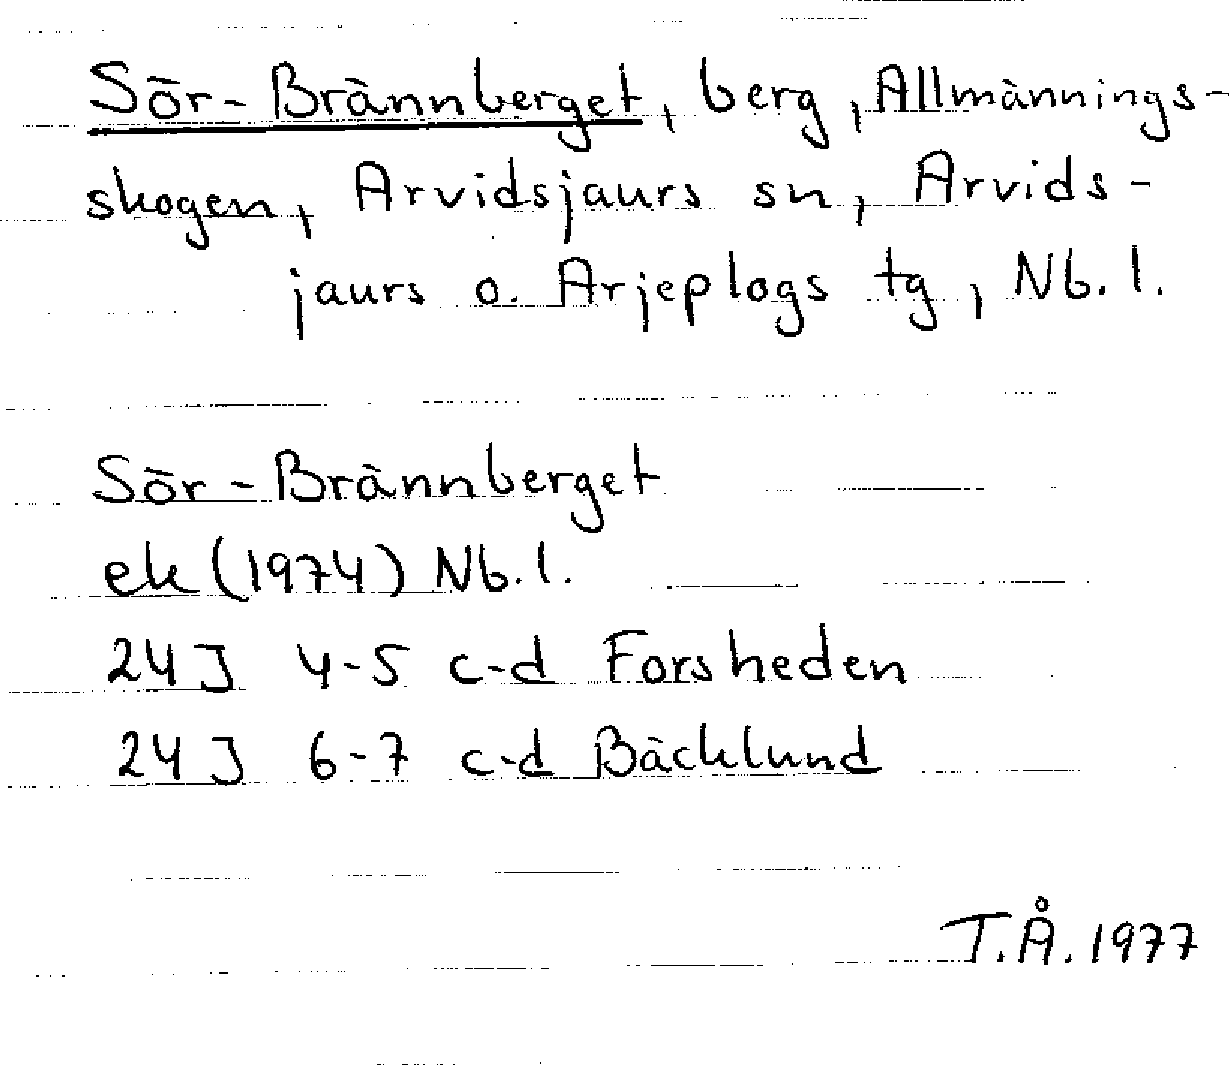 Sör-Brännberget, berg, Allmännings-
skogen, Arvidsjaurs sn, Arvids-
jaurs o. Arjeplogs tg, Nb. l.
Sör-Brännberget
ek (1974) Nb. l.
24J 4-5 c-d Forsheden
24J 6-7 c-d Bäcklund
T.Å. 1977